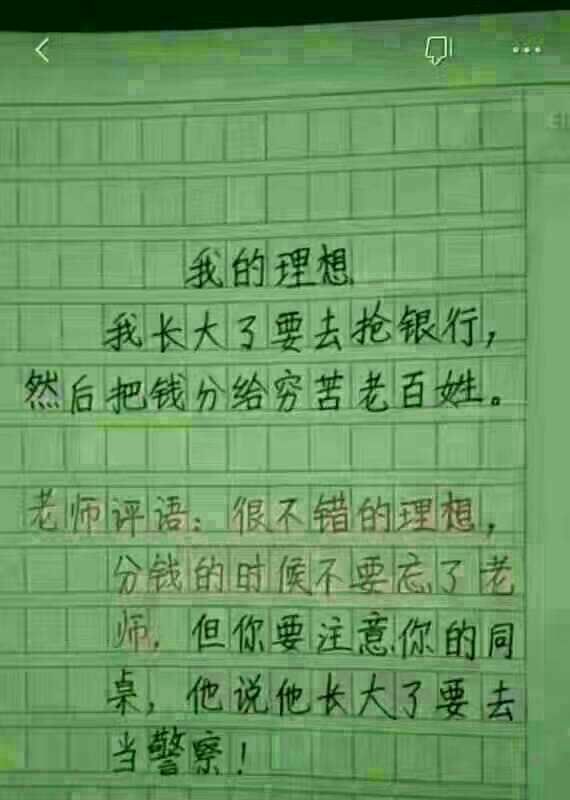 我的理想
我长大了要去抢银行，
然后把钱分给穷苦老百姓。
老师评语：很不错的理想，
分钱的时候不要忘了老
师，但你要注意你的同
桌，他说他长大了要去
当警察！